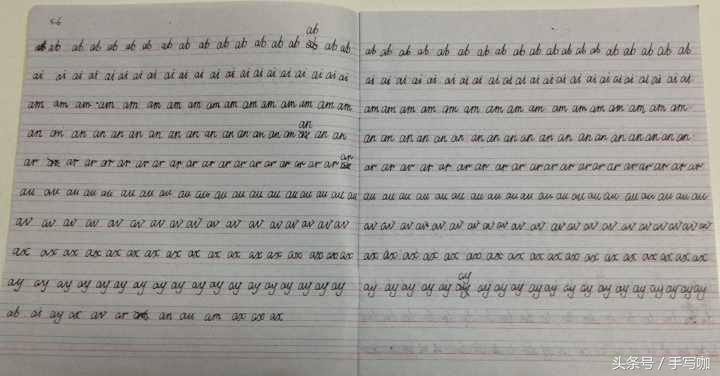 ab
ab ab ab ab ab ab ab ab ab ab ab ab ab ab ab ab ab
ai ai ai ai ai ai ai ai ai ai ai ai ai ai ai ai ai ai ai
am am am am am am am am am am am am am am am am
an an an an an an an an an an an an an an an an an
ar ar ar ar ar ar ar ar ar ar ar ar ar ar ar ar
au au au au au au au au au au au au au au au au au au
av av av av av av av av av av av av av av av av
ax ax ax ax ax ax ax ax ax ax ax ax ax ax ax ax
ay ay ay ay ay ay ay ay ay ay ay ay ay ay ay ay ay
ab ai ay ax av ar an au am ax ax ax
ab ab ab ab ab ab ab ab ab ab ab ab ab ab ab ab
ai ai ai ai ai ai ai ai ai ai ai ai ai ai ai ai ai ai ai
am am am am am am am am am am am am am am am
an an an an an an an an an an an an an an an an an
ar ar ar ar ar ar ar ar ar ar ar ar ar ar ar ar ar ar
au au au au au au au au au au au au au au au au au au
av av av av av av av av av av av av av av av av av av
ax ax ax ax ax ax ax ax ax ax ax ax ax ax ax ax ax ax
ay ay ay ay ay ay ay ay ay ay ay ay ay ay ay ay ay ay
头条号 / 手写咖